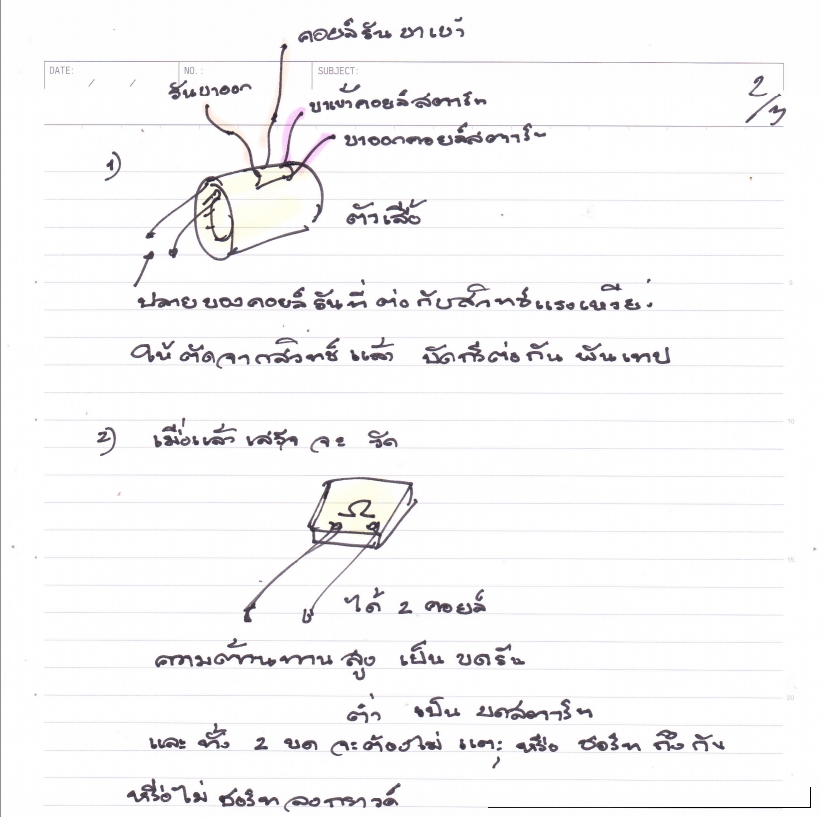 คอยล์รัน ขาเข้า
DATE: / / NO.: SUBJECT:
รันขาออก
ขาเข้าคอยล์สตาร์ท
2/3
ขาออกคอยล์สตาร์ท
1)
ตัวเสื้อ
ปลายของคอยล์รันที่ต่อกับสวิทช์แรงเหวี่ย.
ให้ตัดจากสวิทช์ แล้ว บัดกรีต่อกัน พันเทป
2) เมื่อแล้วเสร็จ จะ วัด
Ω
ได้ 2 คอยล์
ความต้านทาน สูง เป็น ขดรัน
ต่ำ เป็น ขดสตาร์ท
และ ทั้ง 2 ขด จะต้องไม่ แตะ หรือ ชอร์ท ถึงกัน
หรือไม่ ชอร์ท ลงกราวด์
5
10
15
20